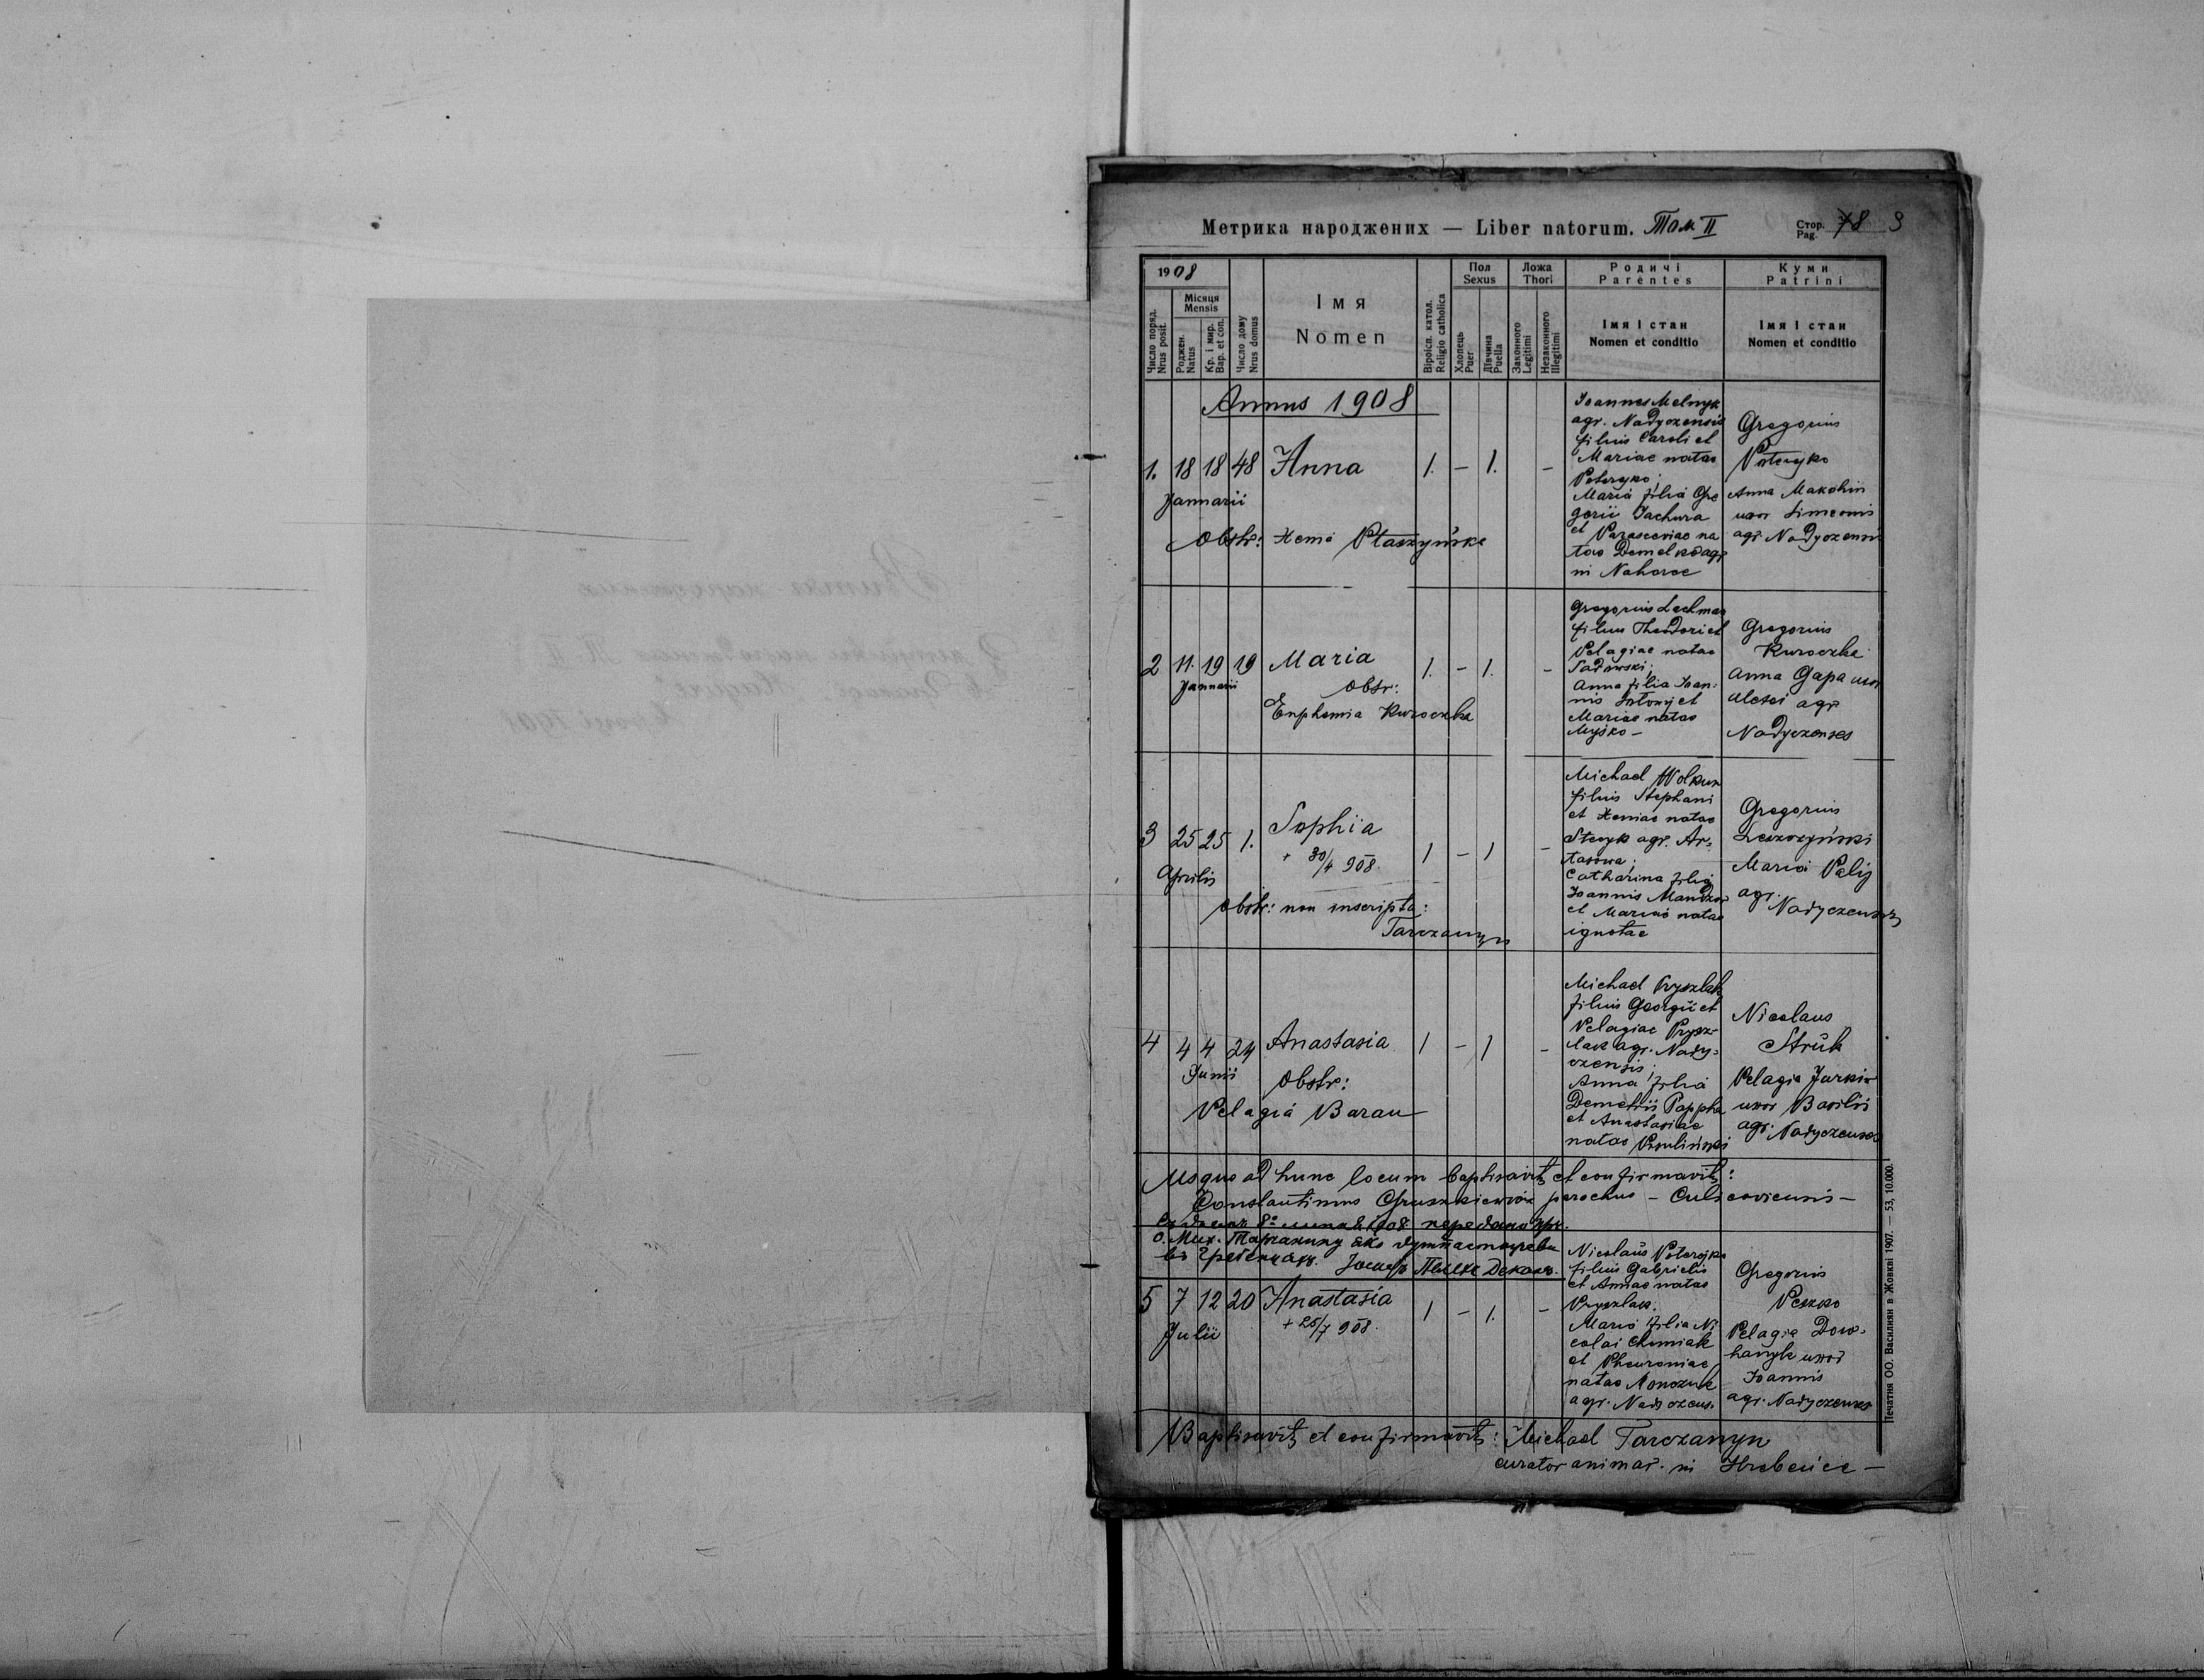 Метрика народжених — Liber natorum. Том II
Стор. Pag. 78 3
1908
Число поряд. Nrus posit.
Місяця Mensis
Роджен. Natus
Кр. і мир. Bap. et con.
Число дому Nrus domus
Імя
Nomen
Віроісп. катол. Religio catholica
Пол Sexus
Хлопець Puer
Дівчина Puella
Ложа Thori
Законного Legitimi
Незаконного Illegitimi
Родичі
Parentes
Імя і стан
Nomen et conditio
Куми
Patrini
Імя і стан
Nomen et conditio
Annus 1908
1. 18 18 48 Anna 1. – 1. –
Januarii
Obstr: Xenia Ptaszyńska
Joannes Melnyk
agr. Nadyczensis
filius Caroli et
Mariae natae
Poteryko;
Maria filia Gre
gorii Jachura
et Parasceviae na
tae Demelko agr
in Nahorce
Gregorius
Poteryko
Anna Makohin
uxor Simeonis
agr. Nadyczensis
2 11. 19 19 Maria 1. – 1. –
Januarii
Obstr:
Euphemia Kuroczka
Gregorius Lachman
filius Theodori et
Pelagiae natae
Sadowski;
Anna filia Joan:
nis et
Mariae natae
Myśko –
Gregorius
Kuroczka
Anna Gapa uxor
Alexii agr
Nadyczenses
3 25 25 1. Sophia 1 – 1 –
+ 30/4 908.
Aprilis
Obstr: non inscripta:
Tarczanyn
Michael Wolkun
filius Stephani
et Xeniae natae
Stecyk agr. Ar:
tasowa;
Catharina filia
Joannis
et Mariae natae
ignotae
Gregorius
Leszczyński
Maria Palij
agr.
Nadyczenses
4 4 4 24 Anastasia 1 – 1 –
Junii
Obstr:
Pelagia Baran
Michael Pryszlak
filius Georgii et
Pelagiae Prysz-
lak agr. Nady:
czensis;
Anna filia
Demetrii Pappha
et Anastasiae
natae
Nicolaus
Struk
Pelagia Jurkiw
uxor Basilii
agr. Nadyczenses
Usque ad hunc locum baptisavit et confirmavit:
Constantinus Gruszkiewicz parochus – Culicoviensis –
передано
о. Мих. Тарчанину яко
Йосиф Декан.
5 7 12 20 Anastasia 1 – 1. –
+ 25/7 908.
Julii
Nicolaus Poteryko
filius Gabrielis
et Annae natae
Pryszlak.
Maria filia Ni
colai Chemiak
et Pheuroniae
natae
agr. Nadyczens.
Gregorius
Peszko
Pelagia Dow-
hanyk uxor
Joannis
agr. Nadyczenses
Baptisavit et confirmavit: Michael Tarczanyn
curator animar. in Hrebeńce –
Печатня ОО. Василиян в Жовкві 1907. — 53, 10.000.